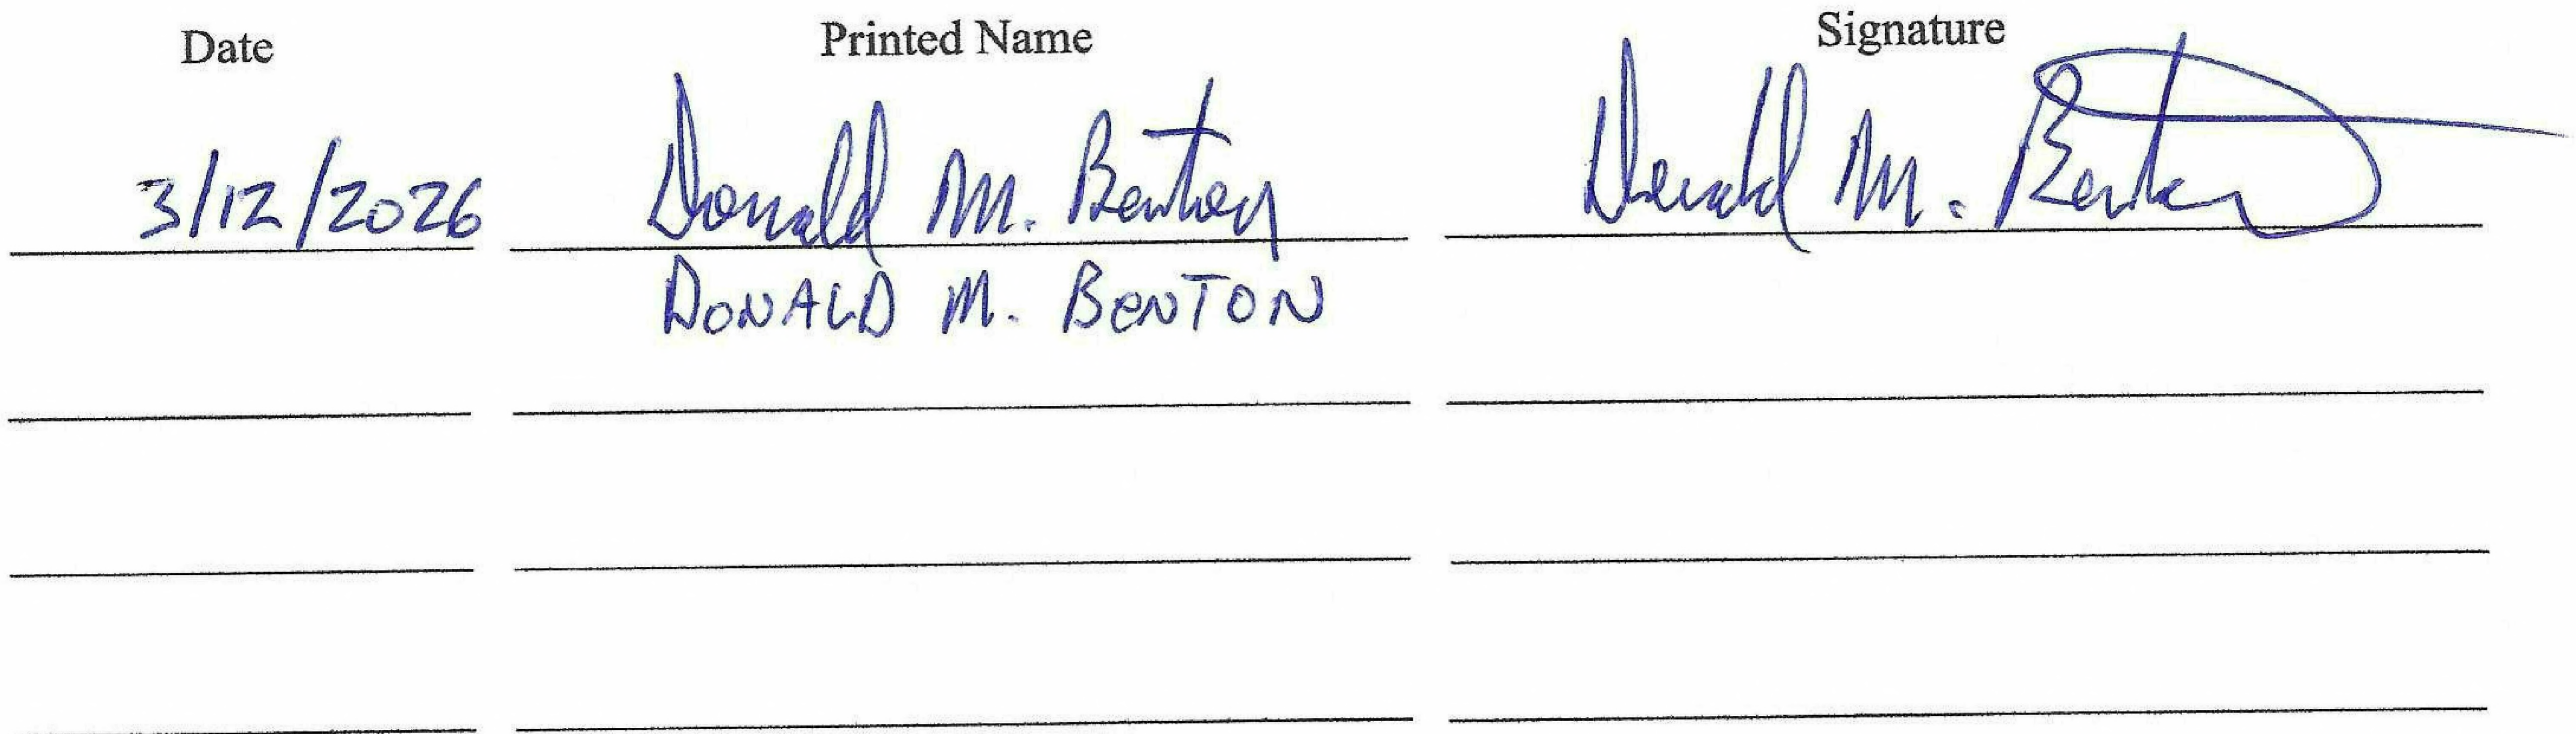 Date Printed Name Signature
3/12/2026 Donald M. Benton Donald M. Benton
DONALD M. BENTON